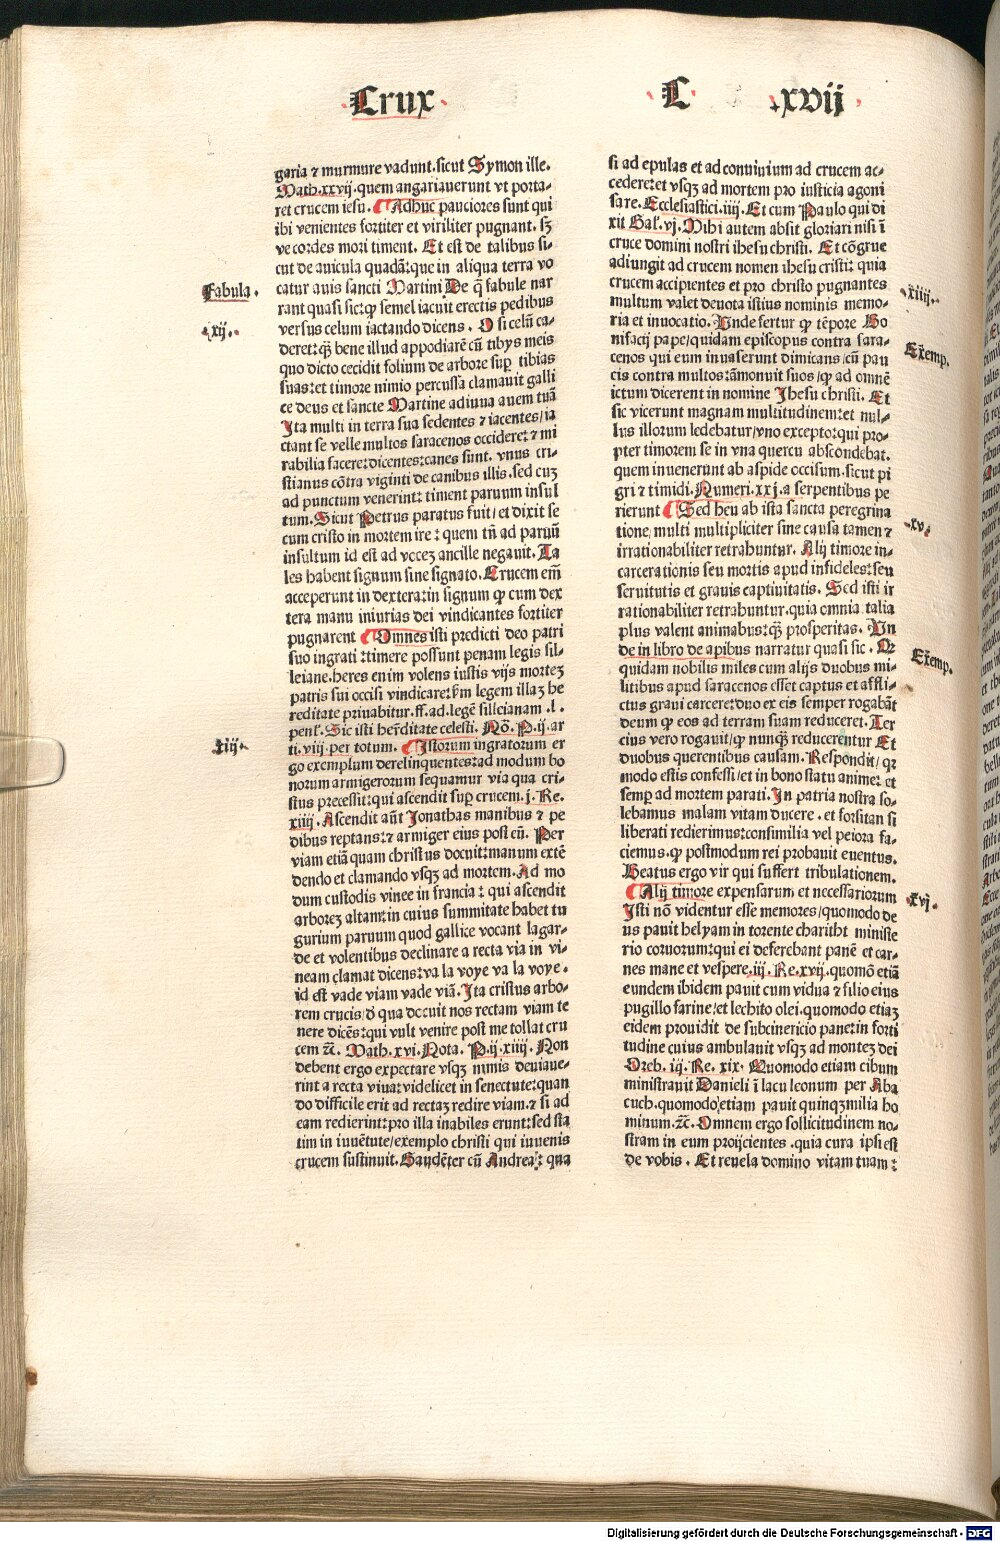 Crux
C xvij
garia ⁊ murmure vadunt. sicut Symon ille.
Math. xxvij. quem angariauerunt vt porta-
ret crucem iesu. Adhuc pauciores sunt qui
ibi venientes fortiter et viriliter pugnant. sꝫ
vecordes mori timent. Et est de talibus si-
cut de auicula quadā: que in aliqua terra vo
catur auis sancti Martini De q̄ fabule nar
rant quasi sic: ꝙ semel iacuit erectis pedibus
versus celum iactando dicens. O si celū ca-
deret: q̄ꝫ bene illud appodiarē cū tibys meis
quo dicto cecidit folium de arbore sup̱ tibias
suas: et timore nimio percussa clamauit galli
ce deus et sancte Martine adiuua auem tuā
Ita multi in terra sua sedentes ⁊ iacentes/ ia
ctant se velle multos saracenos occidere: ⁊ mi
rabilia facere: dicentes: canes sunt. vnus cri-
stianus cōtra viginti de canibus illis. sed cuꝫ
ad punctum venerint: timent paruum insul
tum. Sicut Petrus paratus fuit/ et dixit se
cum cristo in mortem ire: quem tn̄ ad paruū
insultum id est ad vocez ancille negauit. Ta
les habent signum sine signato. Crucem em̄
acceperunt in dextera: in signum ꝙ cum dex
tera manu iniurias dei vindicantes fortiter
pugnarent Omnes isti predicti deo patri
suo ingrati: timere possunt penam legis sil-
leiane. heres enim volens iustis vijs mortez
patris sui occisi vindicare: km̄ legem illaꝫ he
reditate priuabitur. ff. ad. legē silleianam. l.
penl̓. Sic isti her̄ditate celesti. Nō. P. ij. ar
ti. viij. per totum. Istorum ingratorum er
go exemplum derelinquentes: ad modum bo
norum armigerorum sequamur via qua cri-
stus precessit: qui ascendit sup̱ crucem. j. Re.
xiiij. Ascendit aūt Jonathas manibus ⁊ pe
dibus reptans: ⁊ armiger eius post eū. Per
viam etiā quam christus docuit: manum extē
dendo et clamando vsqꝫ ad mortem. Ad mo
dum custodis vinee in francia: qui ascendit
arborez altam: in cuius summitate habet tu
gurium paruum quod gallice vocant lagar-
de et volentibus declinare a recta via in vi-
neam clamat dicens: va la voye va la voye.
id est vade viam vade viā. Ita cristus arbo-
rem crucis/ d qua docuit nos rectam viam te
nere dicēs: qui vult venire post me tollat cru
cem ⁊c̄. Math. xvi. Nota. P. ij. xiiij. Non
debent ergo expectare vsqꝫ nimis deuiaue-
rint a recta viua: videlicet in senectute: quan
do difficile erit ad rectaꝫ redire viam. ⁊ si ad
eam redierint: pro illa inabiles erunt: sed sta
tim in iuuētute/ exemplo christi qui iuuenis
crucem sustinuit. Gaudēter cū Andrea: qua
Fabula.
xij.
xiij.
si ad epulas et ad conuiuium ad crucem ac-
cedere: et vsqꝫ ad mortem pro iusticia agoni
sare. Ecclesiastici. iiij. Et cum Paulo qui di
xit Gal̓. vj. Mihi autem absit gloriari nisi ī
cruce domini nostri ihesu christi. Et cōgrue
adiungit ad crucem nomen ihesu cristi: quia
crucem accipientes et pro christo pugnantes
multum valet deuota istius nominis memo-
ria et inuocatio. Unde fertur ꝙ tēpore Bo
nifacij pape/ quidam episcopus contra sara-
cenos qui eum inuaserunt dimicans/ cū pau
cis contra multos: āmonuit suos/ ꝙ ad omnē
ictum dicerent in nomine Jhesu christi. Et
sic vicerunt magnam multitudinem: et nul-
lus illorum ledebatur/ vno excepto: qui pro-
pter timorem se in vna quercu abscondebat.
quem inuenerunt ab aspide occisum. sicut pi
gri ⁊ timidi. Numeri. xxj. a serpentibus pe
rierunt Sed heu ab ista sancta peregrina
tione, multi multipliciter sine causa tamen ⁊
irrationabiliter retrahuntur. Alij timore in-
carcerationis seu mortis apud infideles: seu
seruitutis et grauis captiuitatis. Sed isti ir
rationabiliter retrahuntur. quia omnia talia
plus valent animabus: q̄ꝫ prosperitas. Un
de in libro de apibus narratur quasi sic. Qꝛ
quidam nobilis miles cum alijs duobus mi-
litibus apud saracenos esset captus et affli-
ctus graui carcere: duo ex eis semper rogabāt
deum ꝙ eos ad terram suam reduceret. Ter
cius vero rogauit/ ꝙ nunqꝫ̄ reducerentur Et
duobus querentibus causam. Respondit/ qꝛ
modo estis confessi/ et in bono statu anime: et
semp̱ ad mortem parati. In patria nostra so-
lebamus malam vitam ducere. et forsitan si
liberati redierimus: consimilia vel peiora fa-
ciemus. ꝙ postmodum rei probauit euentus.
Beatus ergo vir qui suffert tribulationem.
Alij timore expensarum et necessariorum
Isti nō videntur esse memores/ quomodo de
us pauit helyam in torente charitht ministe
rio coruorum: qui ei deferebant panē et car-
nes mane et vespere. iij. Re. xvij. quomō etiā
eundem ibidem pauit cum vidua ⁊ filio eius
pugillo farine/ et lechito olei. quomodo etiaꝫ
eidem prouidit de subcinericio pane: in forti
tudine cuius ambulauit vsqꝫ ad montez dei
Oreb. iij. Re. xix. Quomodo etiam cibum
ministrauit Danieli ī lacu leonum per Aba
cuch. quomodo etiam pauit quinqꝫmilia ho
minum. ⁊c̄. Omnem ergo sollicitudinem no-
stram in eum proijcientes. quia cura ipsi est
de vobis. Et reuela domino vitam tuam:
xiiij.
Exemp.
xv.
Exemp.
xvj.
Digitalisierung gefördert durch die Deutsche Forschungsgemeinschaft - DFG